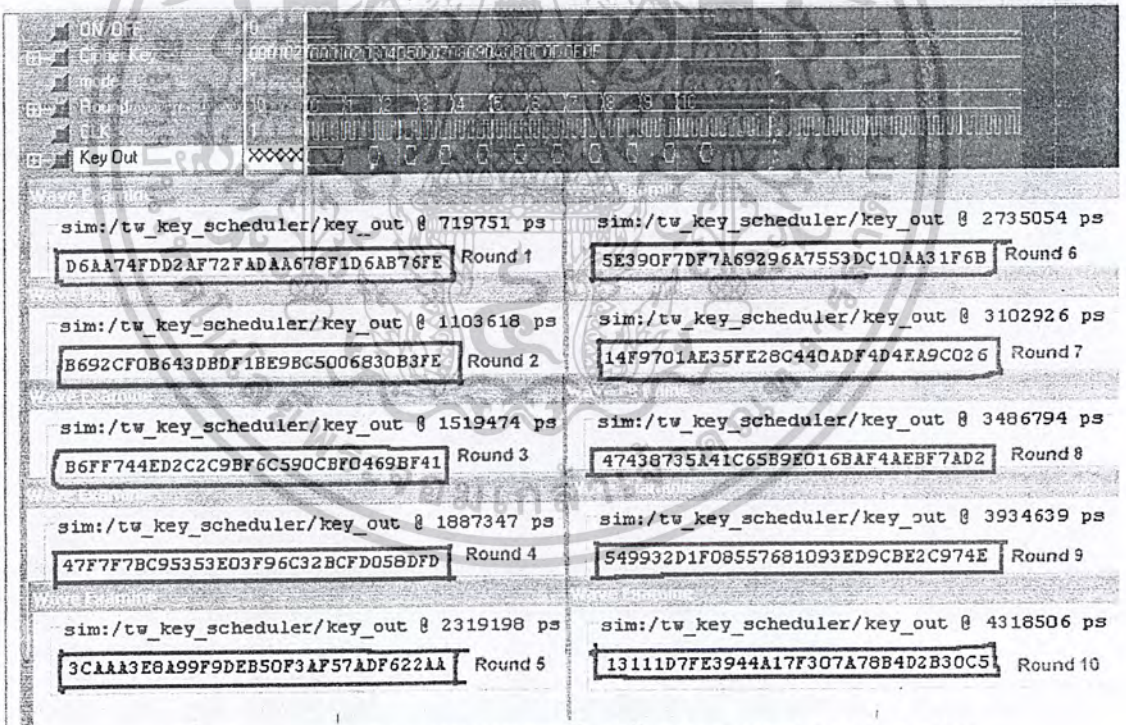 ON/OFF 0
Cipher Key 000102 000102030405060708090A0B0C0D0E0F
mode
10 0 1 2 3 4 5 6 7 8 9 10
CLK 1
Key Out XXXXX
Wave Examine
sim:/tw_key_scheduler/key_out @ 719751 ps
D6AA74FDD2AF72FADAA678F1D6AB76FE Round 1
Wave Examine
sim:/tw_key_scheduler/key_out @ 1103618 ps
B692CF0B643DBDF1BE9BC5006830B3FE Round 2
Wave Examine
sim:/tw_key_scheduler/key_out @ 1519474 ps
B6FF744ED2C2C9BF6C590CBF0469BF41 Round 3
sim:/tw_key_scheduler/key_ @ 1887347 ps
47F7F7BC95353E03F96C32BCFD058DFD Round 4
Wave Examine
sim:/tw_key_scheduler/key_out @ 2319198 ps
3CAAA3E8A99F9DEB50F3AF57ADF622AA Round 5
Wave Examine
sim:/tw_key_scheduler/key_out @ 2735054 ps
5E390F7DF7A69296A7553DC10AA31F6B Round 6
sim:/tw_key_scheduler/key_out @ 3102926 ps
14F9701AE35FE28C440ADF4D4EA9C026 Round 7
sim:/tw_key_scheduler/key_out @ 3486794 ps
47438735A41C65B9E016BAF4AEBF7AD2 Round 8
sim:/tw_key_scheduler/key_out @ 3934639 ps
549932D1F08557681093ED9CBE2C974E Round 9
Wave Examine
sim:/tw_key_scheduler/key_out @ 4318506 ps
13111D7FE3944A17F307A78B4D2B30C5 Round 10